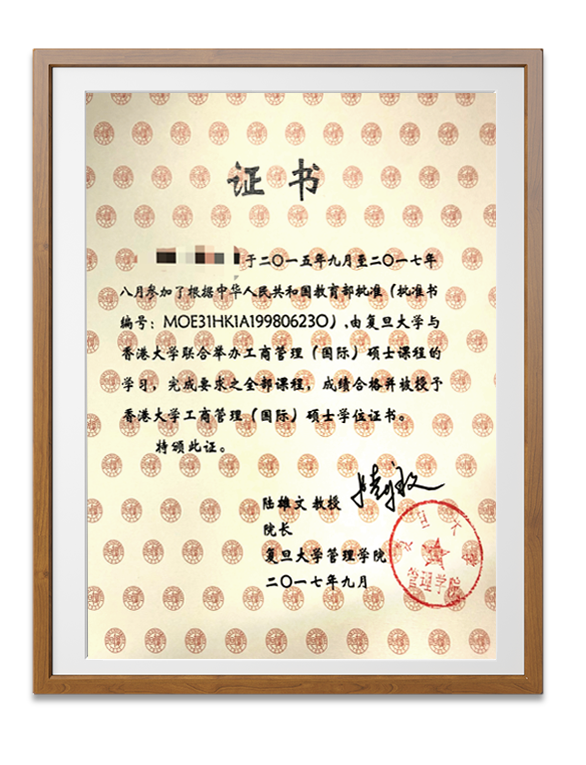 证书
于二〇一五年九月至二〇一七年
八月参加了根据中华人民共和国教育部批准（批准书
编号：MOE31HK1A19980623O）,由复旦大学与
香港大学联合举办工商管理（国际）硕士课程的
学习，完成要求之全部课程，成绩合格并被授予
香港大学工商管理（国际）硕士学位证书。
特颁此证。
陆雄文 教授
院长
复旦大学管理学院
二〇一七年九月
复旦大学
管理学院